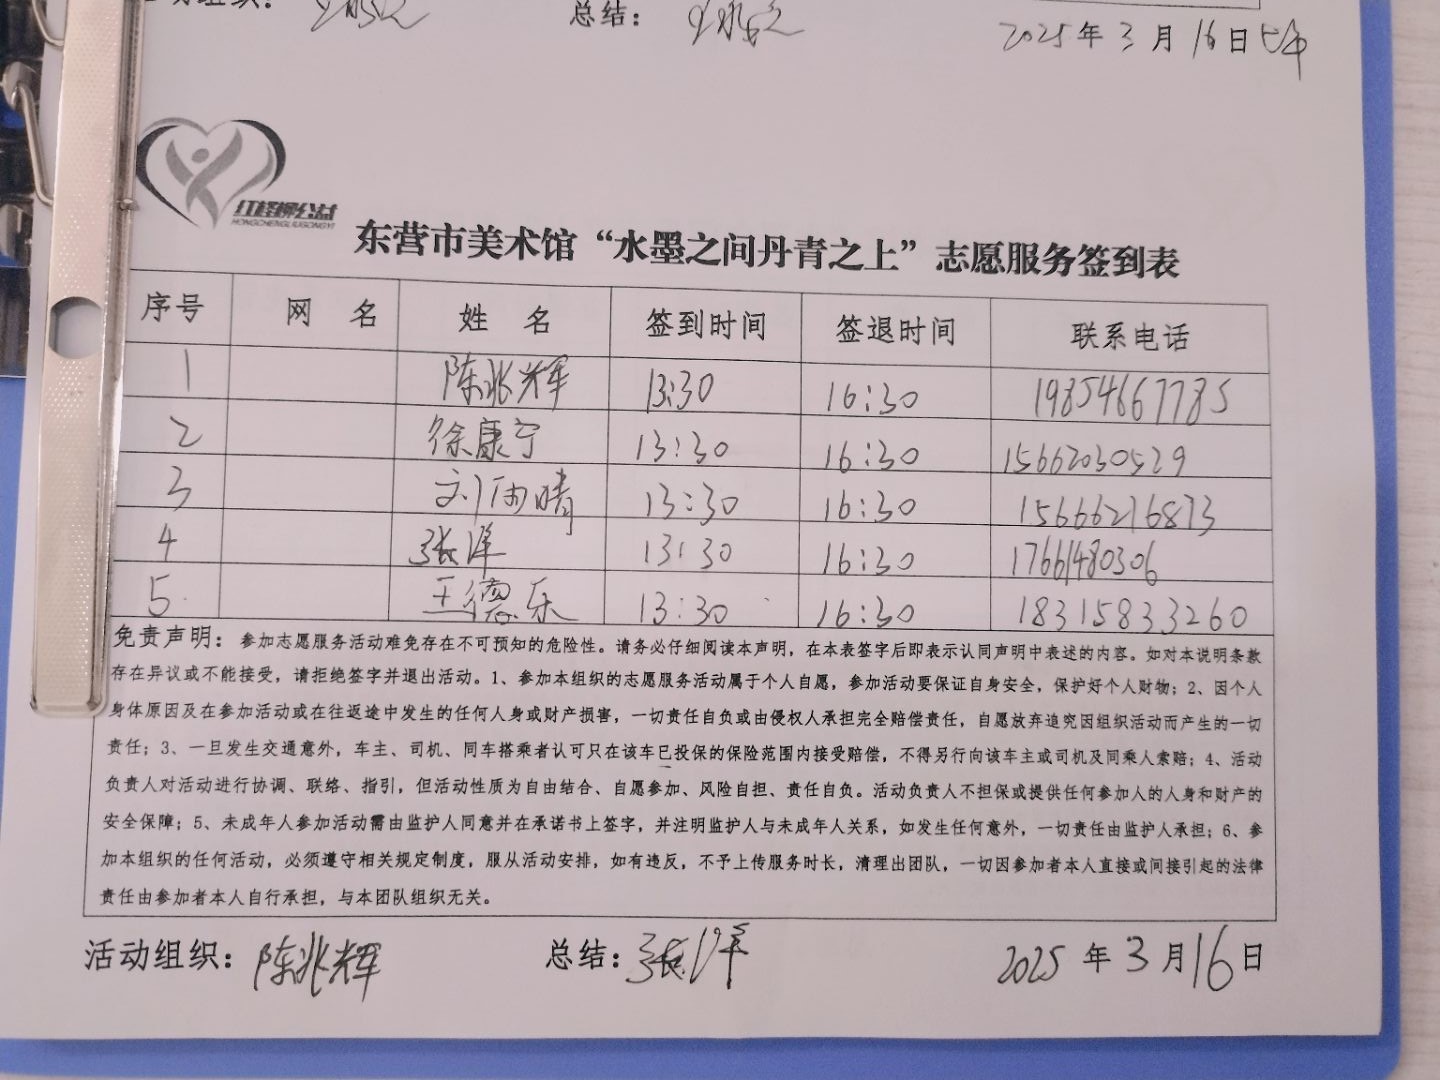 总结：
2025年3月16日上午
红柽柳公益
HONGCHENGLIUGONGYI
东营市美术馆“水墨之间丹青之上”志愿服务签到表
序号 网 名 姓 名 签到时间 签退时间 联系电话
1 陈兆辉 13:30 16:30 19854667785
2 徐康宁 13:30 16:30 15662030529
3 刘雨晴 13:30 16:30 15666216873
4 张洋 13:30 16:30 17661480306
5 王德乐 13:30 16:30 18315833260
免责声明：参加志愿服务活动难免存在不可预知的危险性。请务必仔细阅读本声明，在本表签字后即表示认同声明中表述的内容。如对本说明条款
存在异议或不能接受，请拒绝签字并退出活动。1、参加本组织的志愿服务活动属于个人自愿，参加活动要保证自身安全，保护好个人财物；2、因个人
身体原因及在参加活动或在往返途中发生的任何人身或财产损害，一切责任自负或由侵权人承担完全赔偿责任，自愿放弃追究因组织活动而产生的一切
责任；3、一旦发生交通意外，车主、司机、同车搭乘者认可只在该车已投保的保险范围内接受赔偿，不得另行向该车主或司机及同乘人索赔；4、活动
负责人对活动进行协调、联络、指引，但活动性质为自由结合、自愿参加、风险自担、责任自负。活动负责人不担保或提供任何参加人的人身和财产的
安全保障；5、未成年人参加活动需由监护人同意并在承诺书上签字，并注明监护人与未成年人关系，如发生任何意外，一切责任由监护人承担；6、参
加本组织的任何活动，必须遵守相关规定制度，服从活动安排，如有违反，不予上传服务时长，清理出团队，一切因参加者本人直接或间接引起的法律
责任由参加者本人自行承担，与本团队组织无关。
活动组织：陈兆辉 总结：张洋 2025年3月16日